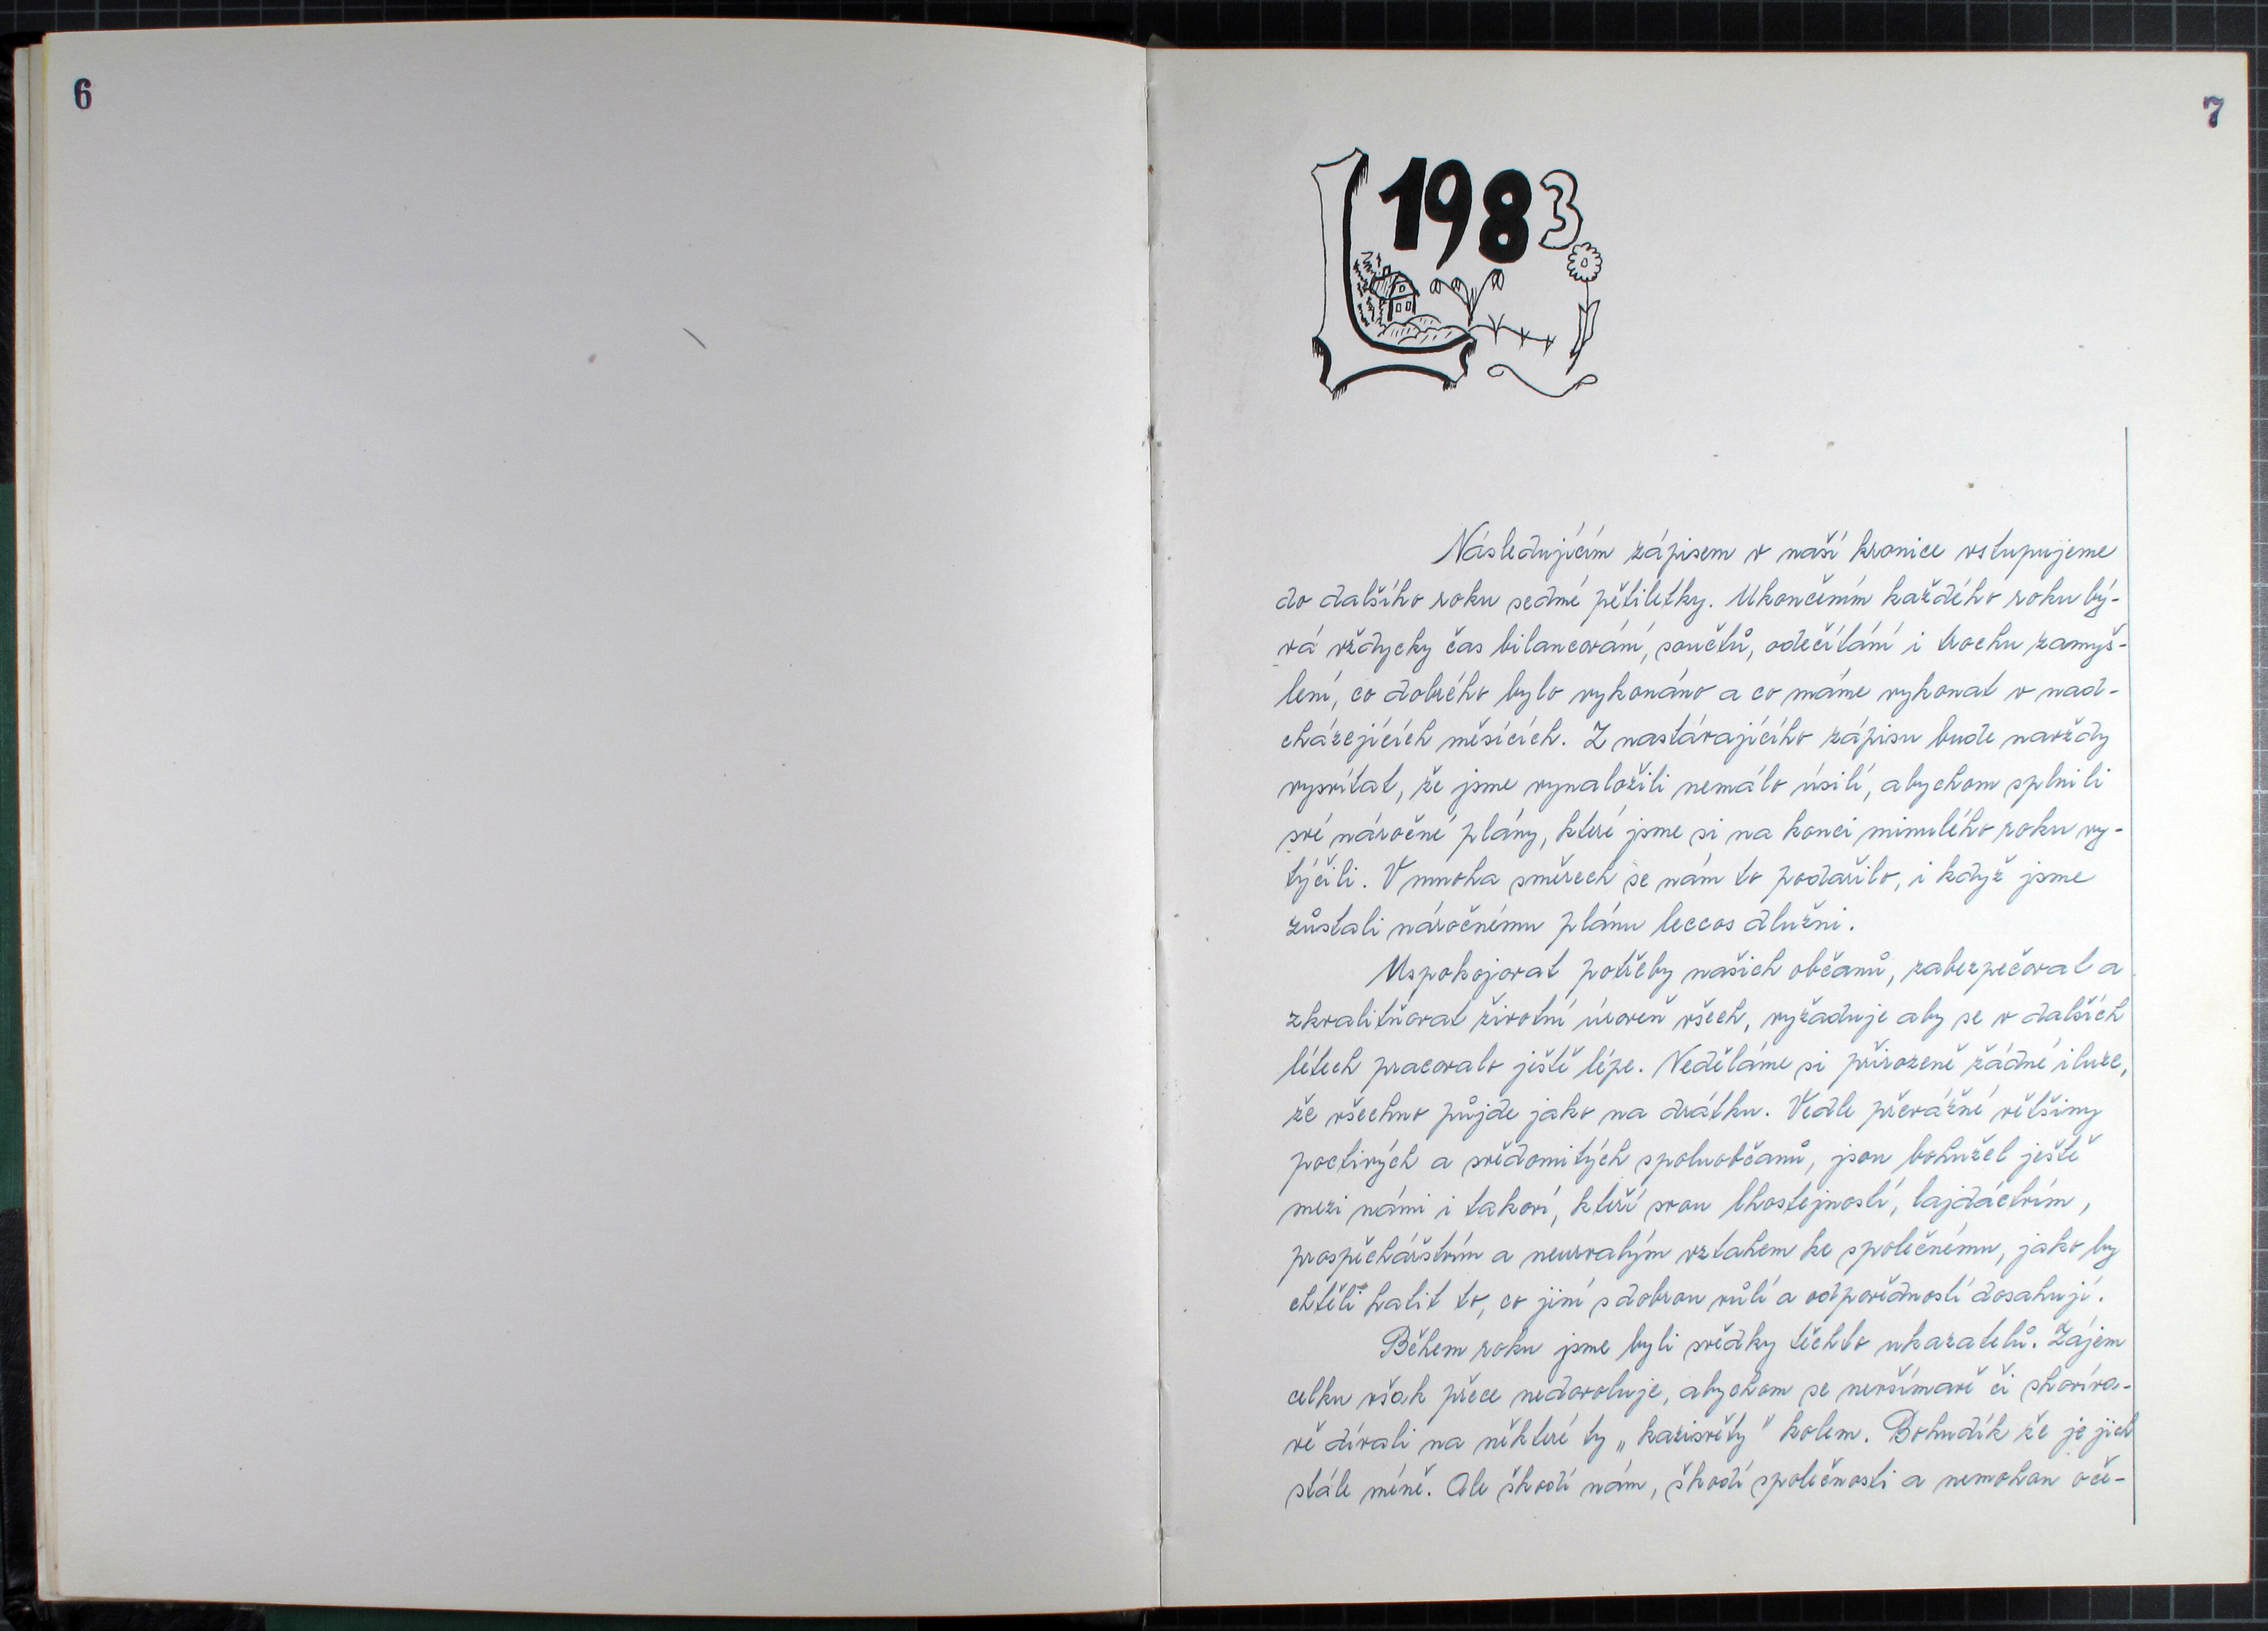 6
7
1983
Následujícím zápisem v naší kronice vstupujeme
do dalšího roku sedmé pětiletky. Ukončením každého roku bý-
vá vždycky čas bilancování, součtů, odečítání i trochu zamyš-
lení, co dobrého bylo vykonáno a co máme vykonat v nad-
cházejících měsících. Z nastávajícího zápisu bude navždy
vysvítat, že jsme vynaložili nemálo úsilí, abychom splnili
své náročné plány, které jsme si na konci minulého roku vy-
týčili. V mnoha směrech se nám to podařilo, i když jsme
zůstali náročnému plánu leccos dlužni.
Uspokojovat potřeby našich občanů, zabezpečovat a
zkvalitňovat životní úroveň všech, vyžaduje aby se v dalších
létech pracovalo ještě lépe. Neděláme si přirozeně žádné iluze,
že všechno půjde jako na drátku. Vedle převážné většiny
poctivých a svědomitých spoluobčanů, jsou bohužel ještě
mezi námi i takoví, kteří svou lhostejností, lajdáctvím,
prospěchářstvím a neurvalým vztahem ke společnému, jako by
chtěli halit to, co jiní s dobrou vůlí a odpovědností dosahují.
Během roku jsme byli svědky těchto ukazatelů. Zájem
celku však přece nedovoluje, abychom se nevšímavě či shovíva-
vě dívali na některé ty „kazisvěty" kolem. Bohudík že je jich
stále méně. Ale škodí nám, škodí společnosti a nemohou oče-